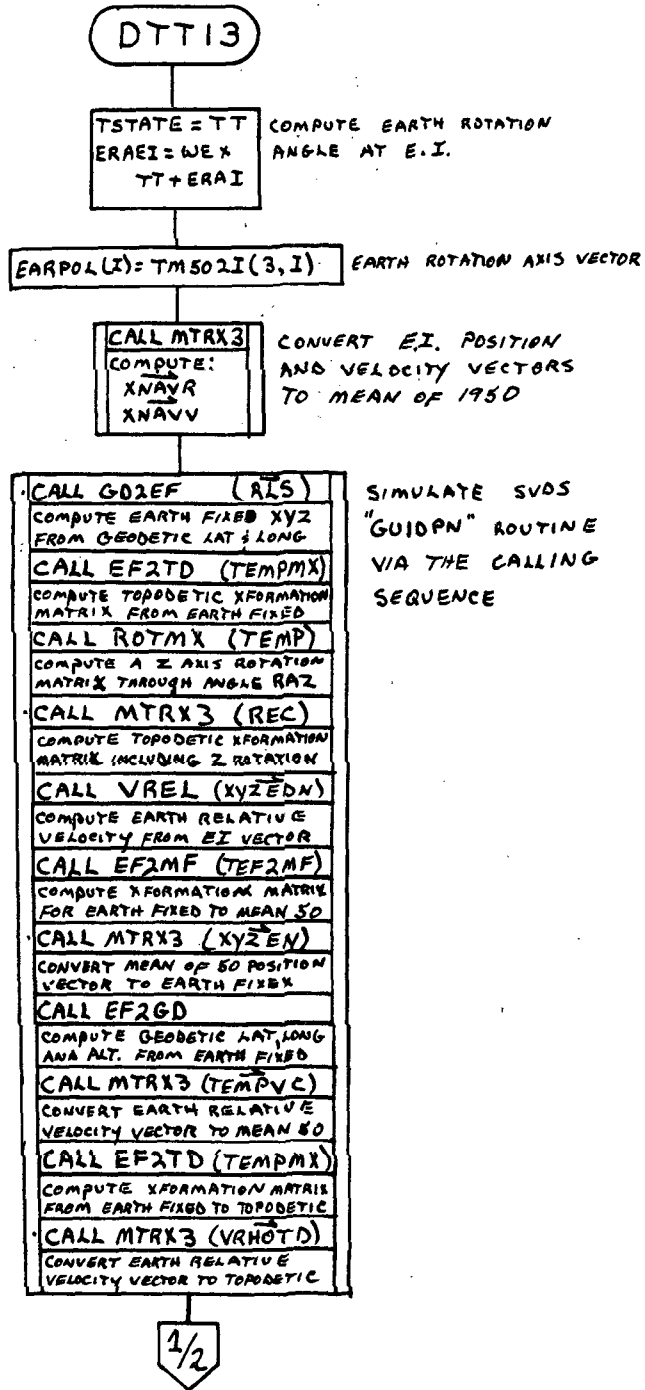 DTT13
TSTATE = TT
ERAEI = WE X
TT + ERAI
COMPUTE EARTH ROTATION
ANGLE AT E.I.
EARPOL(I) = TM502I(3,I)
EARTH ROTATION AXIS VECTOR
CALL MTRX3
COMPUTE:
XNAVR
XNAVV
CONVERT E.I. POSITION
AND VELOCITY VECTORS
TO MEAN OF 1950
CALL GD2EF (RLS)
COMPUTE EARTH FIXED XYZ
FROM GEODETIC LAT & LONG
CALL EF2TD (TEMPMX)
COMPUTE TOPODETIC XFORMATION
MATRIX FROM EARTH FIXED
CALL ROTMX (TEMP)
COMPUTE A Z AXIS ROTATION
MATRIX THROUGH ANGLE RAZ
CALL MTRX3 (REC)
COMPUTE TOPODETIC XFORMATION
MATRIX INCLUDING Z ROTATION
CALL VREL (XYZEDN)
COMPUTE EARTH RELATIVE
VELOCITY FROM EI VECTOR
CALL EF2MF (TEF2MF)
COMPUTE XFORMATION MATRIX
FOR EARTH FIXED TO MEAN 50
CALL MTRX3 (XYZEN)
CONVERT MEAN OF 50 POSITION
VECTOR TO EARTH FIXEX
CALL EF2GD
COMPUTE GEODETIC LAT, LONG
ANA ALT. FROM EARTH FIXED
CALL MTRX3 (TEMPVC)
CONVERT EARTH RELATIVE
VELOCITY VECTOR TO MEAN 50
CALL EF2TD (TEMPMX)
COMPUTE XFORMATION MATRIX
FROM EARTH FIXED TO TOPODETIC
CALL MTRX3 (VRHOTD)
CONVERT EARTH RELATIVE
VELOCITY VECTOR TO TOPODETIC
SIMULATE SVDS
"GUIDPN" ROUTINE
VIA THE CALLING
SEQUENCE
1/2